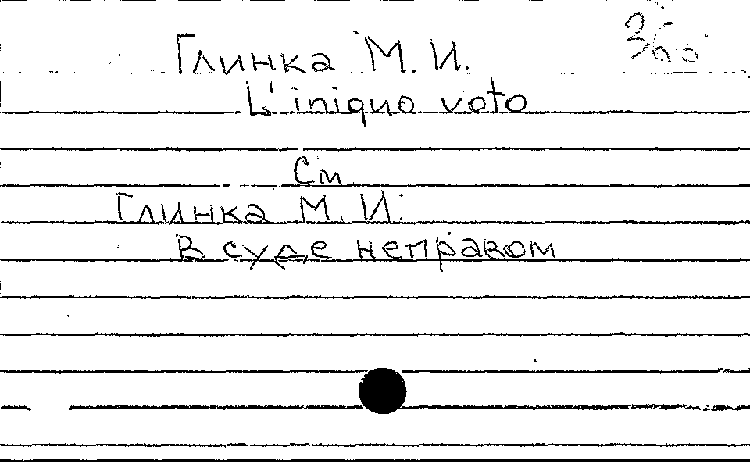 Глинка М. И.
L'iniquo voto
См
Глинка М. И.
В суде неправом